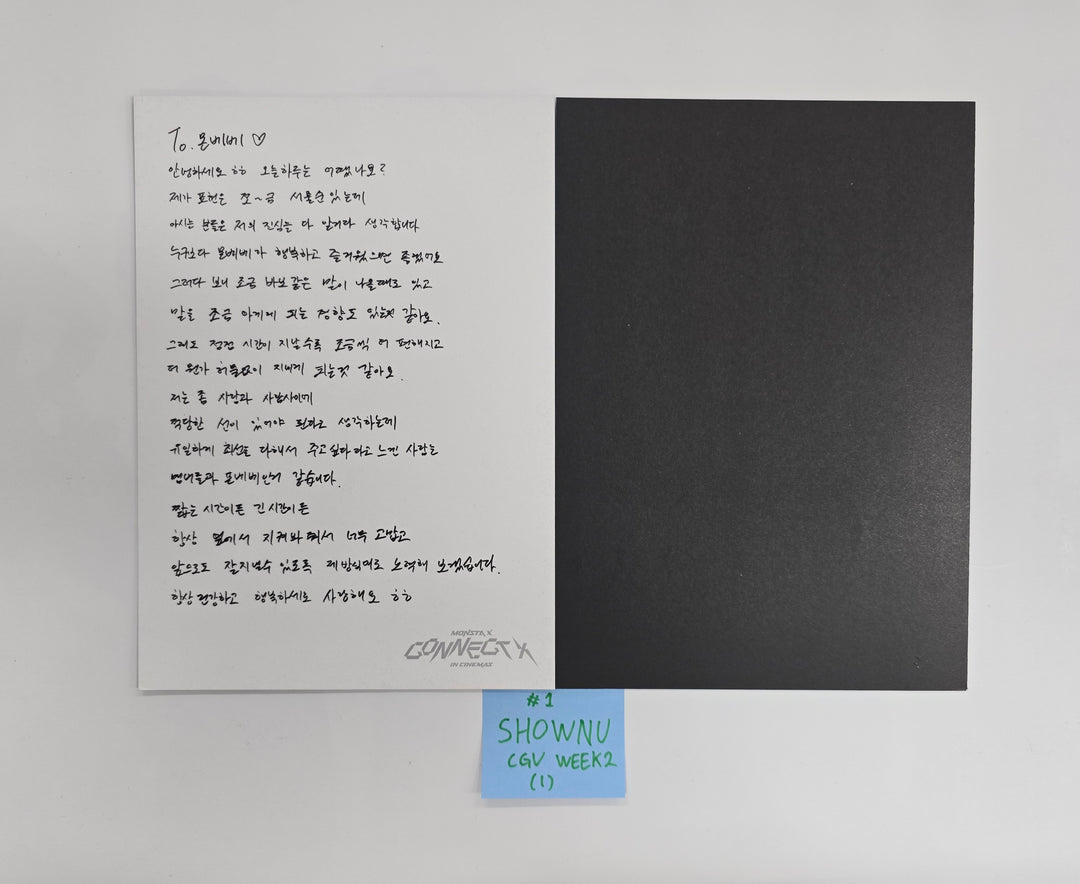 To. 몬베베 ♡
안녕하세요 ㅎㅎ 오늘하루는 어땠나요?
제가 표현은 쪼~금 서툴순있는데
아시는 분들은 저의 진심을 다 알거라 생각합니다
누구보다 몬베베가 행복하고 즐거웠으면 좋겠어요
그러다 보니 조금 바보같은 말이 나올때도 있고
말을 조금 아끼게 되는 경향도 있는것 같아요.
그래도 점점 시간이 지날수록 조금씩 더 편해지고
더 뭔가 허물없이 지내게 되는것 같아요.
저는 좀 사람과 사람사이에
적당한 선이 있어야 된다고 생각하는데
유일하게 최선을 다해서 주고싶다 라고 느낀 사람은
멤버들과 몬베베인거 같습니다.
짧은 시간이든 긴 시간이든
항상 옆에서 지켜봐 줘서 너무 고맙고
앞으로도 잘지낼수 있도록 제 방식대로 노력해 보겠습니다.
항상 건강하고 행복하세요 사랑해요 ㅎㅎ
MONSTA X
CONNECT X
IN CINEMAS
#1
SHOWNU
CGV WEEK2
(1)